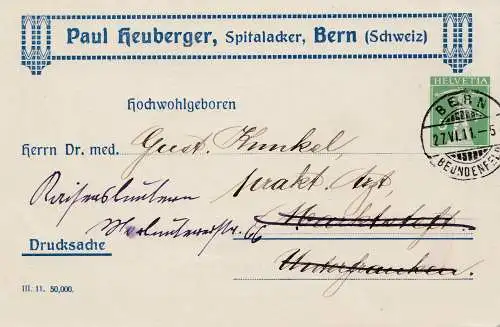 Paul Heuberger, Spitalacker, Bern (Schweiz)
HELVETIA
BERN
27.VI.11.-5
BEUNDENFELD
Hochwohlgeboren
Herrn Dr. med. Gust. Kunkel,
prakt. Arzt,
Kaiserslautern
Marktsteft
Merlautererstr. 66
Drucksache
Unterfranken.
III. 11. 50,000.